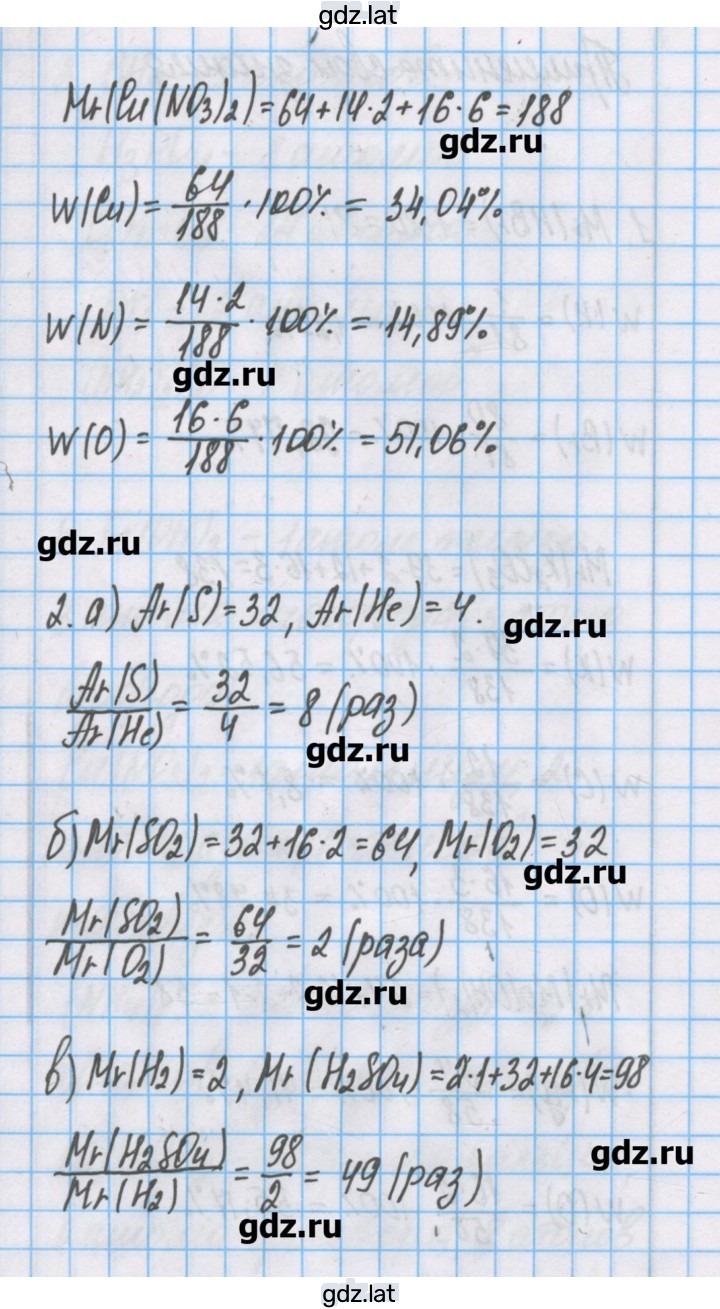 gdz.lat
Mr(Cu(NO3)2)=64+14·2+16·6=188
gdz.ru
W(Cu)= 64/188 ·100% = 34,04%
W(N)= 14·2/188 ·100% = 14,89%
gdz.ru
W(O)= 16·6/188 ·100% = 51,06%
gdz.ru
2. а) Ar(S)=32, Ar(He)=4.
gdz.ru
Ar(S)/Ar(He) = 32/4 = 8 (раз)
gdz.ru
б) Mr(SO2)=32+16·2=64, Mr(O2)=32
gdz.ru
Mr(SO2)/Mr(O2) = 64/32 = 2 (раза)
gdz.ru
в) Mr(H2)=2, Mr(H2SO4)=2·1+32+16·4=98
gdz.ru
Mr(H2SO4)/Mr(H2) = 98/2 = 49 (раз)
gdz.ru
gdz.lat